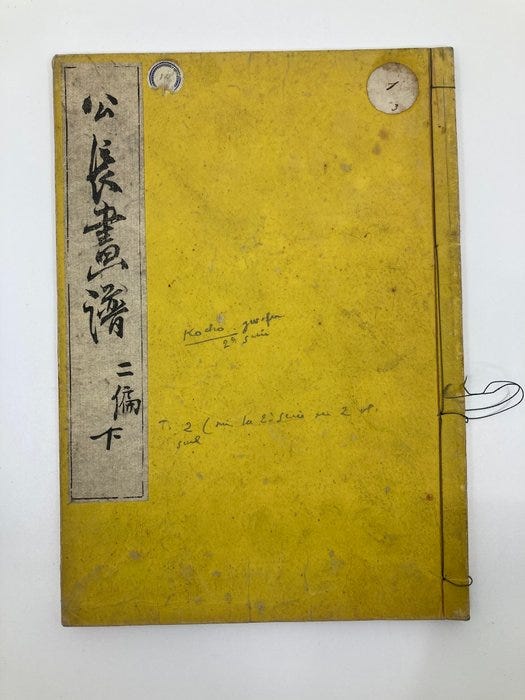 公長畫譜
二偏下
19
1
3
Kocho. gwafu
2e série
T. 2 ( sur la 2e série en 2 v.
seul